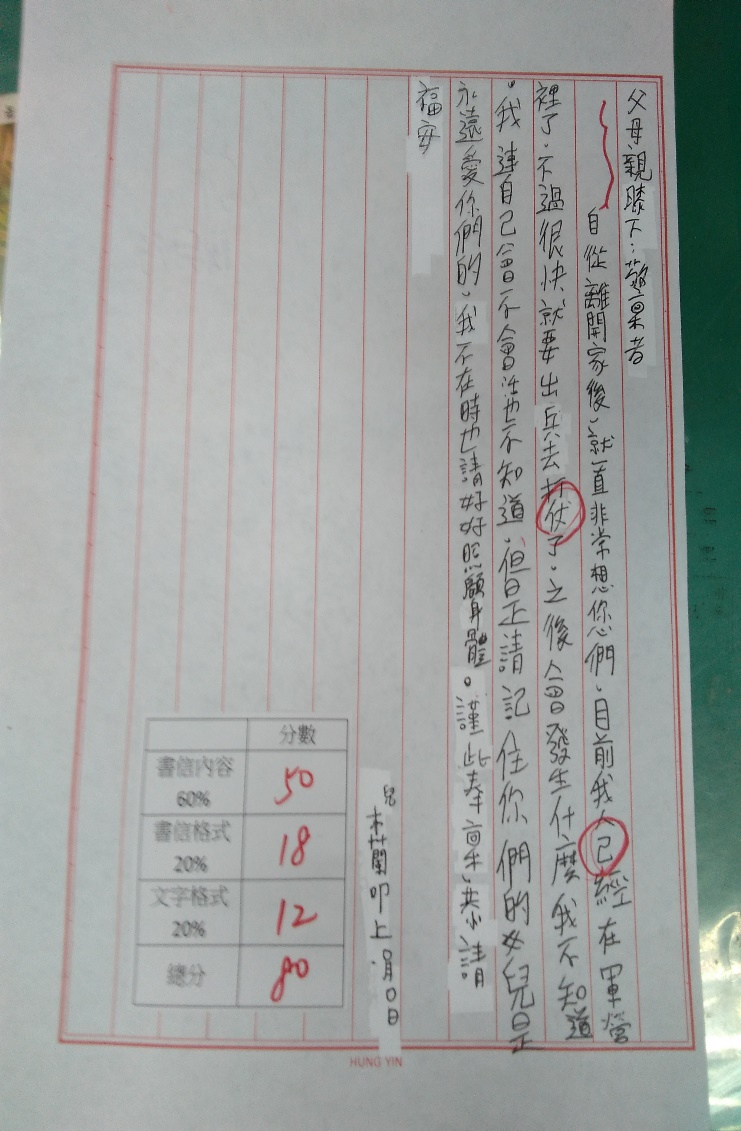 父母親膝下：敬稟者
自從離開家後，就一直非常想您們。目前我人已經在軍營
裡了。不過很快就要出兵去打伏了。之後會發生什麼我不知道
。我連自己會不會活也不知道，但是請記住你們的女兒是
永遠愛你們的，我不在時也請好好照顧身體。謹此奉稟，恭請
福安
兒
木蘭叩上 ○月○日
分數
書信內容 60% 50
書信格式 20% 18
文字格式 20% 12
總分 80
HUNG YIN